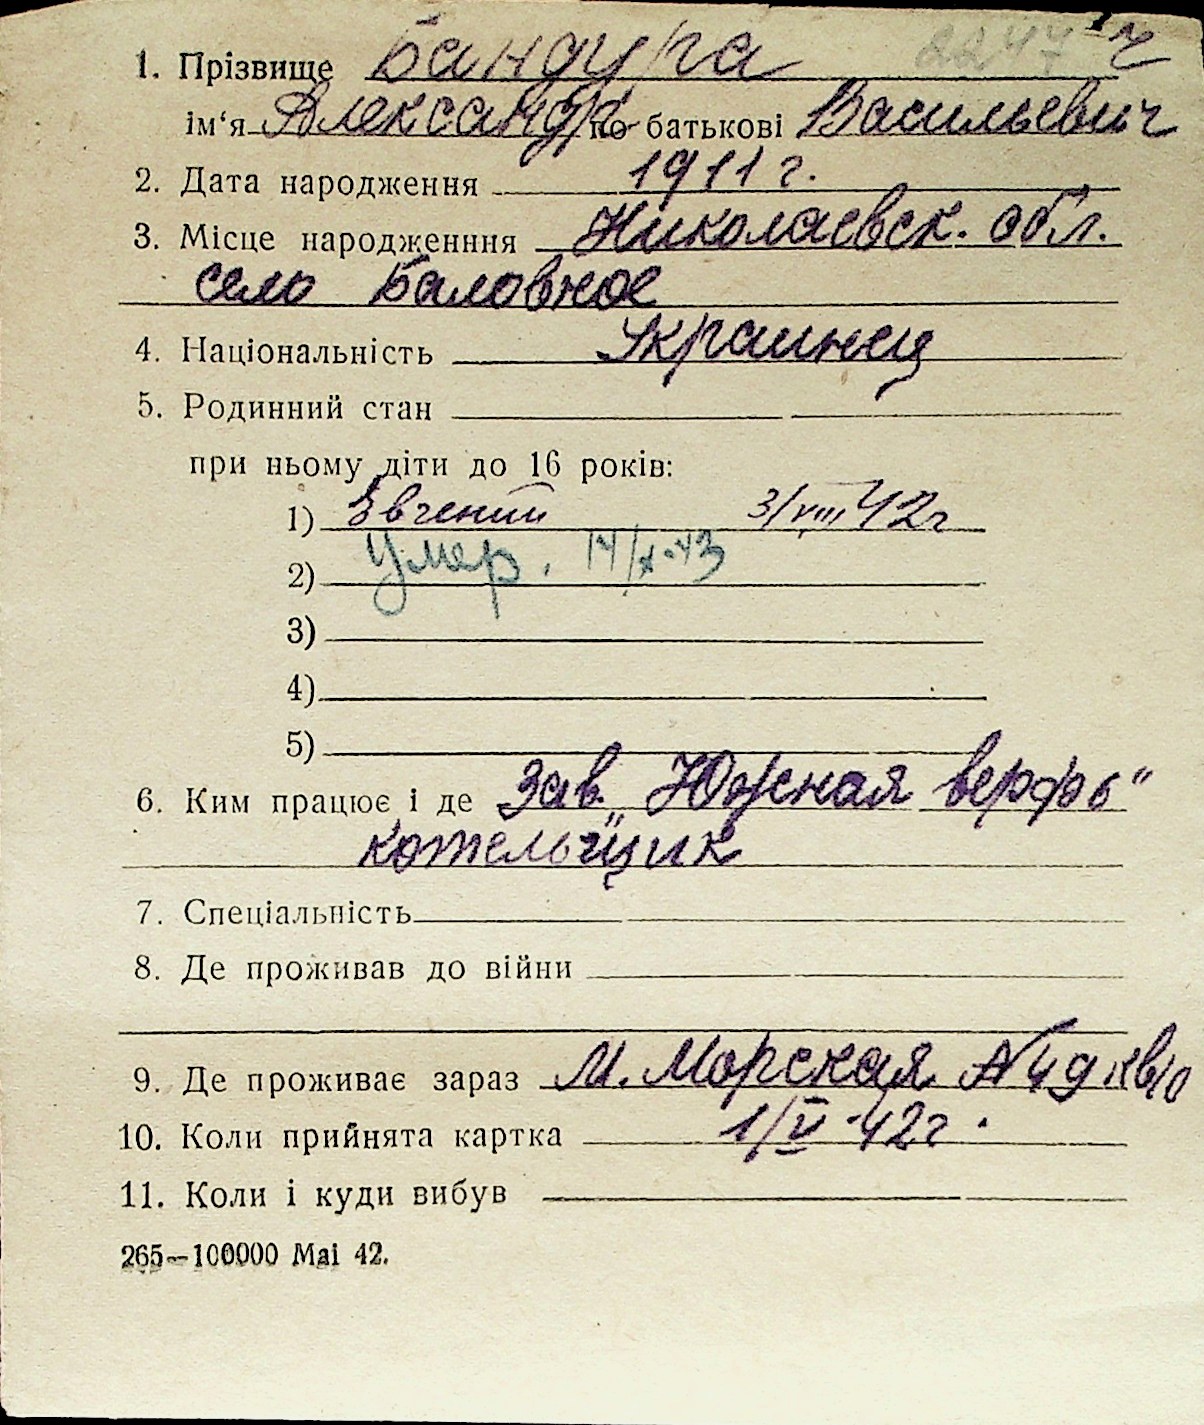 2247 ч
1. Прізвище Бандура
ім‘я Александр по батькові Васильевич
2. Дата народження 1911 г.
3. Місце народженння Николаевск. обл.
село Баловное
4. Національність Украинец
5. Родинний стан
при ньому діти до 16 років:
1) Евгений 3/VIII 42г
2) Умер. 14/X-43
3)
4)
5)
6. Ким працює і де Зав. „Южная верфь“
котельщик
7. Спеціальність
8. Де проживав до війни
9. Де проживає зараз М. Морская №49 кв10
10. Коли прийнята картка 1/VI-42г.
11. Коли і куди вибув
265—100000 Mai 42.